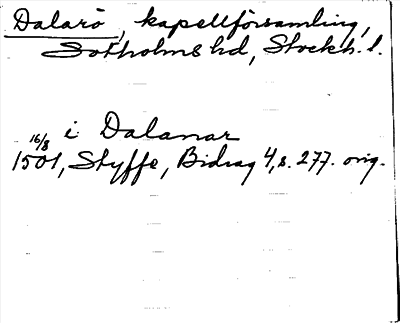 Dalarö, kapellförsamling,
Sotholms hd, Stockh. l.
i Dalamar
16/8
1501, Styffe, Bidrag 4, s. 277. orig.